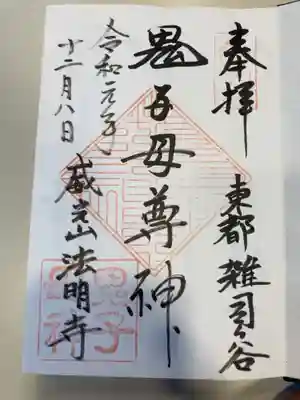 奉拝
東都雑司ヶ谷
鬼子母尊神
令和元年
十二月八日
威光山法明寺